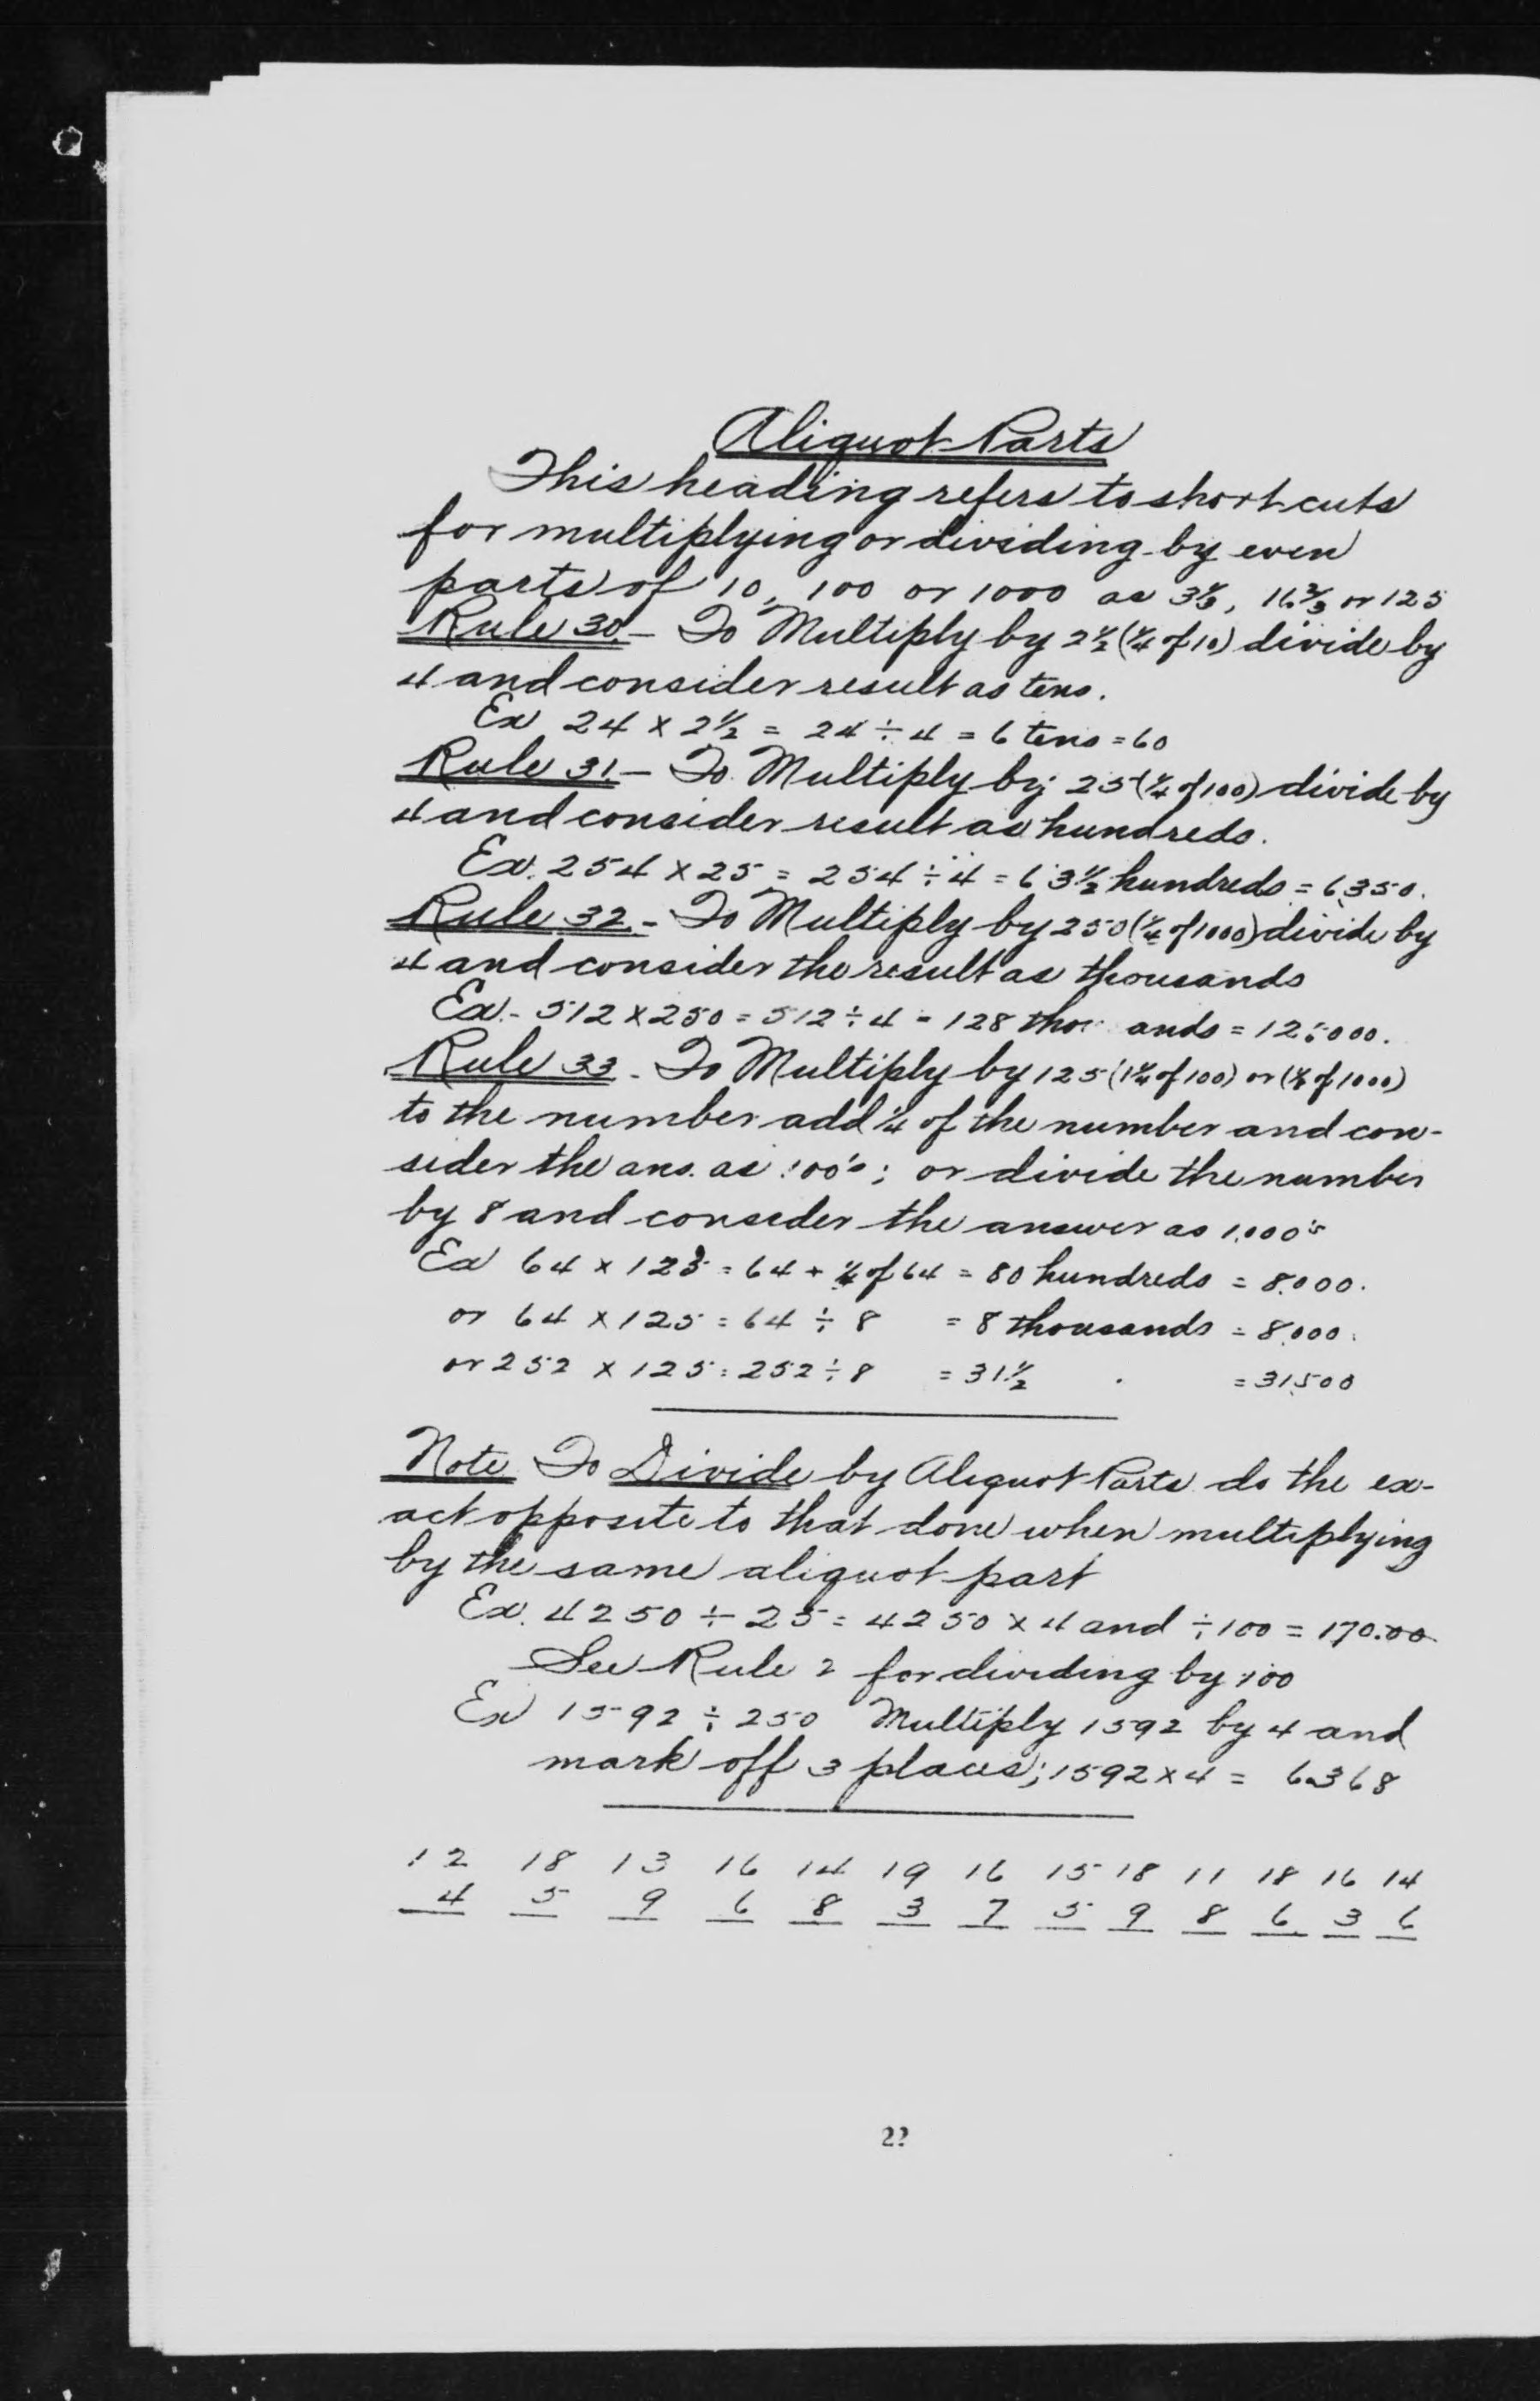 Aliquot Parts
This heading refers to short cuts
for multiplying or dividing by even
parts of 10, 100 or 1000 as 3⅓, 16⅔ or 125
Rule 30.- To Multiply by 2½ (¼ of 10) divide by
4 and consider result as tens.
Ex 24 × 2½ = 24 ÷ 4 = 6 tens = 60
Rule 31.- To Multiply by 25 (¼ of 100) divide by
4 and consider result as hundreds.
Ex. 254 × 25 = 254 ÷ 4 = 63½ hundreds = 6,350.
Rule 32.- To Multiply by 250 (¼ of 1000) divide by
4 and consider the result as thousands
Ex.- 512 × 250 = 512 ÷ 4 = 128 thousands = 128000.
Rule 33 - To Multiply by 125 (1¼ of 100) or (⅛ of 1000)
to the number add ¼ of the number and con-
sider the ans. as 100's; or divide the number
by 8 and consider the answer as 1,000's
Ex 64 × 125 = 64 + ¼ of 64 = 80 hundreds = 8,000.
or 64 × 125 = 64 ÷ 8 = 8 thousands = 8,000.
or 252 × 125 = 252 ÷ 8 = 31½ = 31,500
Note To Divide by Aliquot Parts do the ex-
act opposite to that done when multiplying
by the same aliquot part
Ex. 4250 ÷ 25 = 4250 × 4 and ÷ 100 = 170.00
See Rule 2 for dividing by 100
Ex 1592 ÷ 250 Multiply 1592 by 4 and
mark off 3 places; 1592 × 4 = 6.368
12 18 13 16 14 19 16 15 18 11 18 16 14
4 5 9 6 8 3 7 5 9 8 6 3 6
22